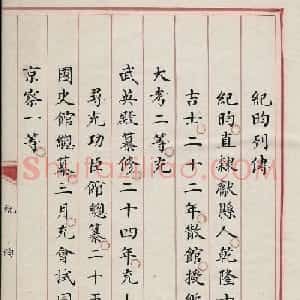 紀昀列傳
紀昀直隸獻縣人乾隆十
吉士二十二年散館授編
大考二等充
武英殿纂修二十四年充
尋充功臣館總纂二十五
國史館總纂三月充會試同
京察一等
紀昀
Shuhaziliao.com